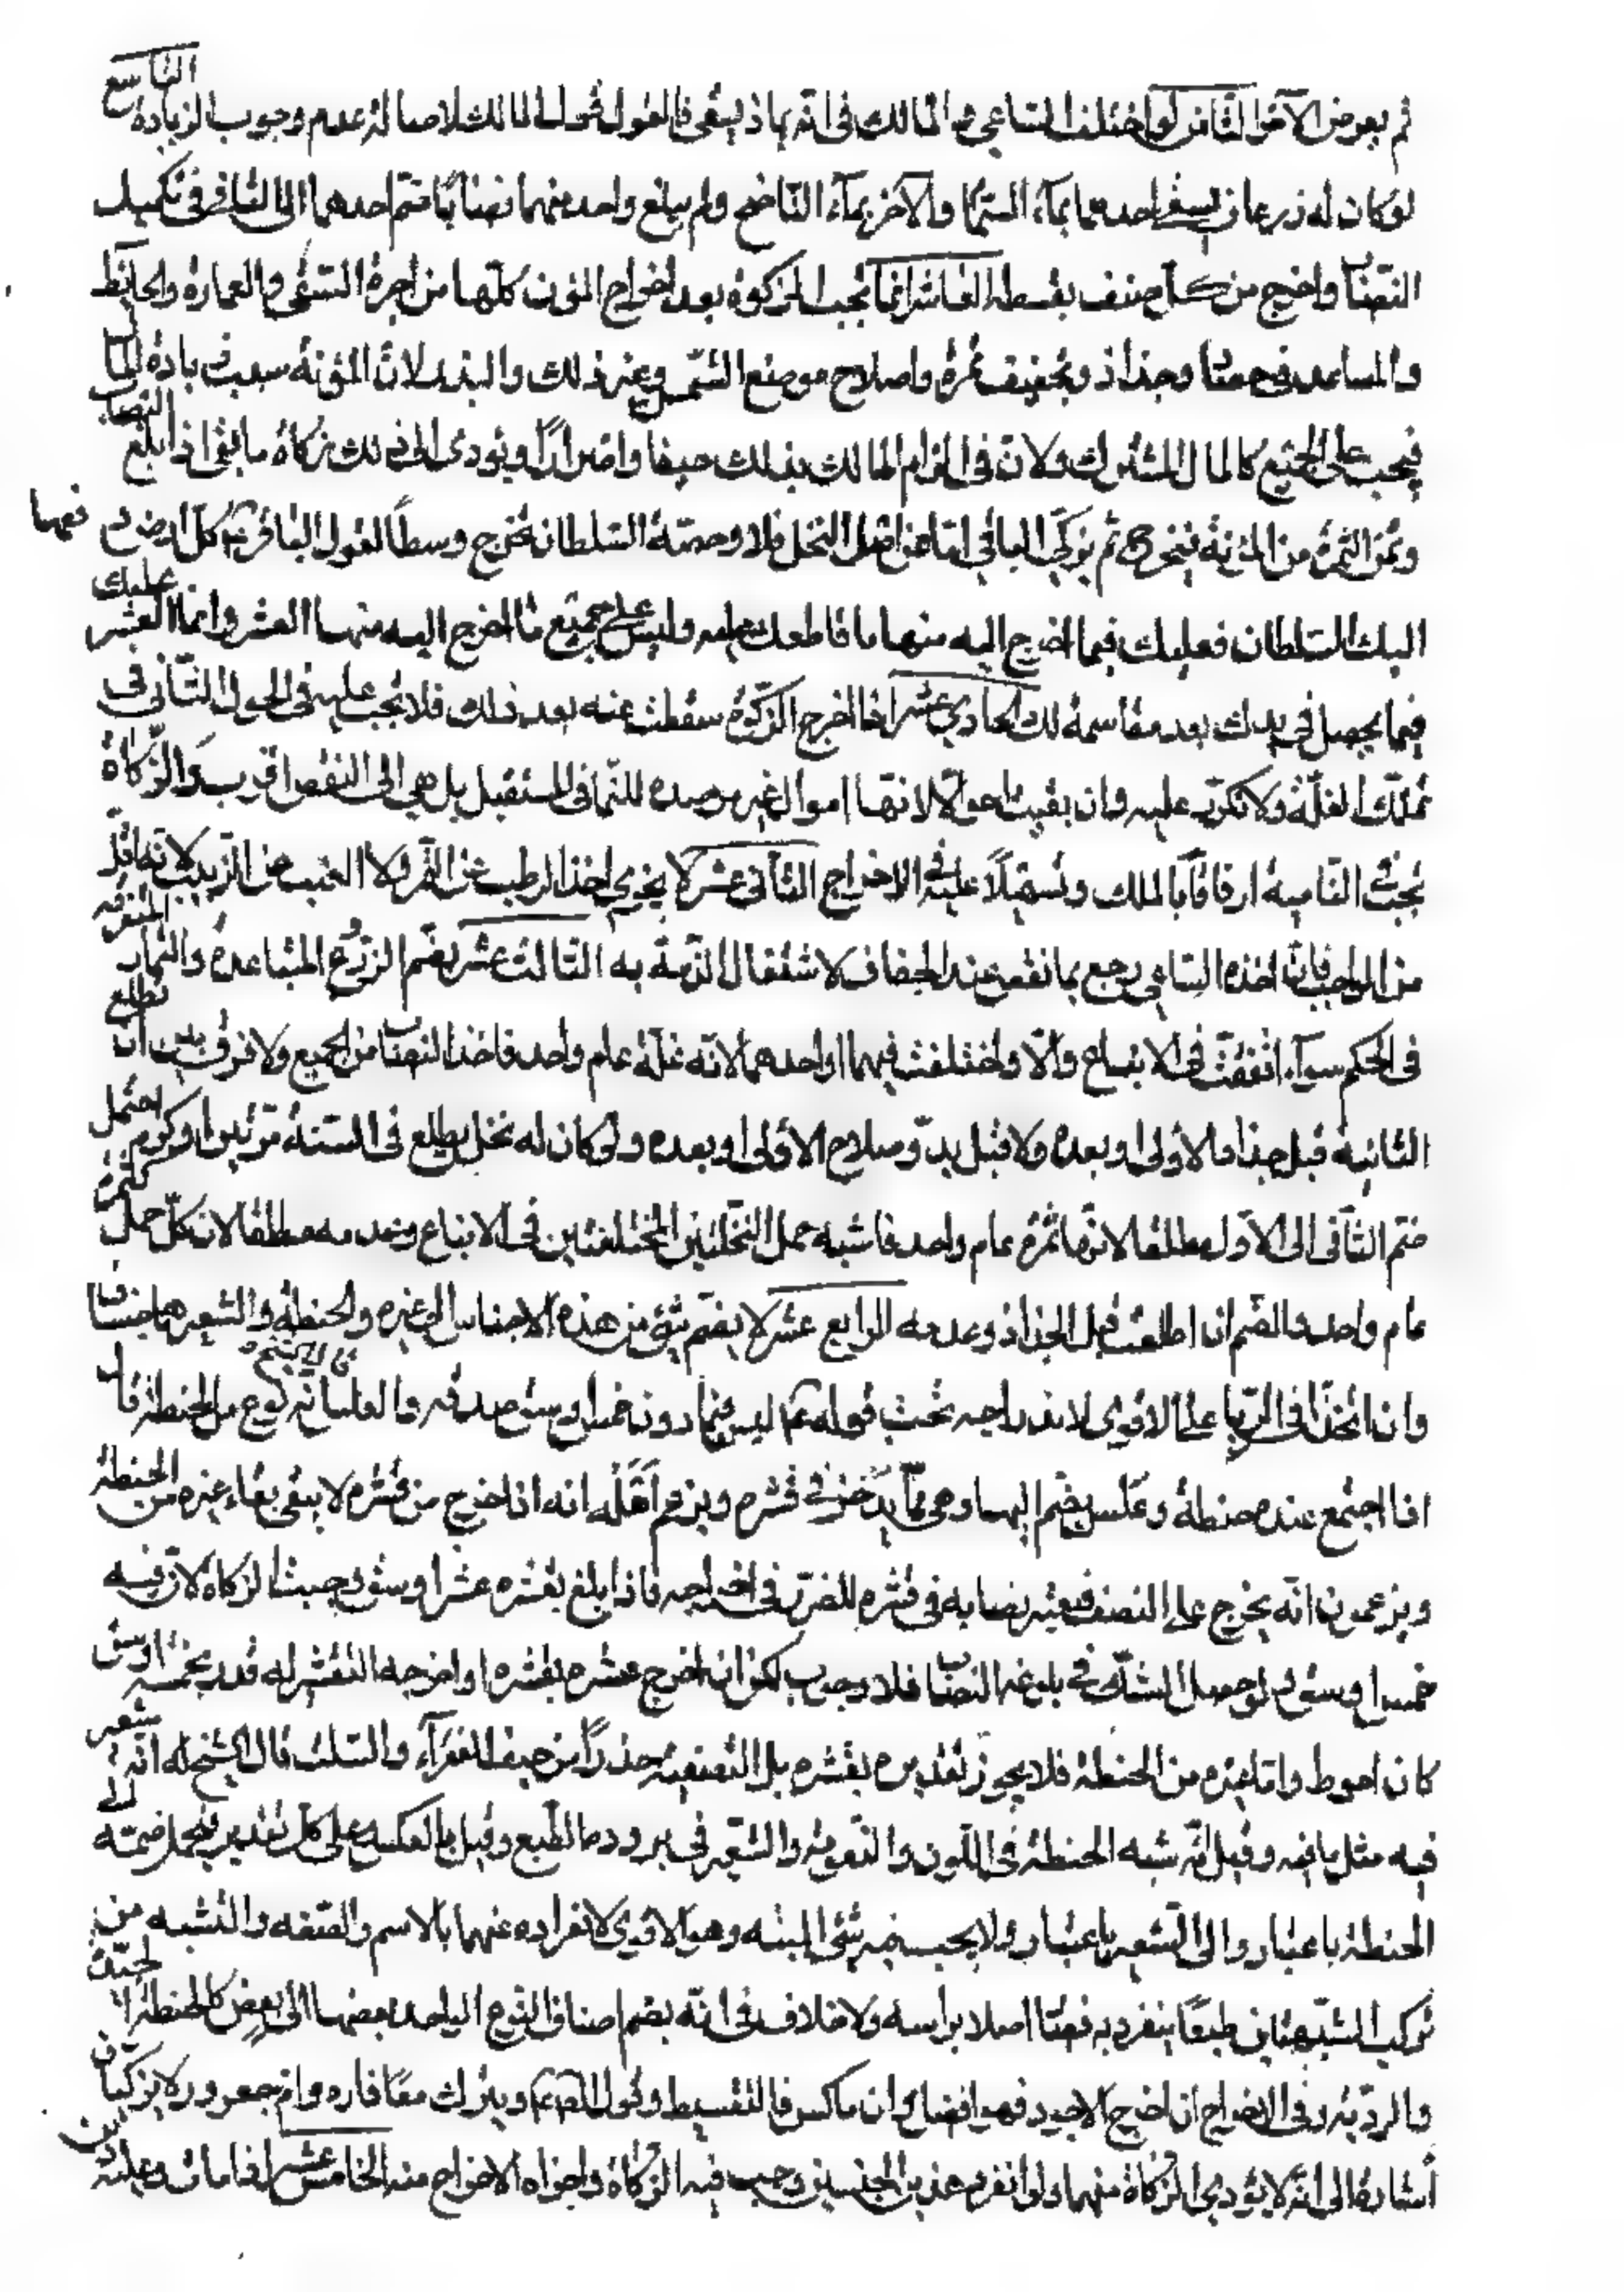 ثم يعرض الآخر الثامن لو اختلف الساعي والمالك في انه بماذا يسقى فالقول قول المالك لاصالة عدم وجوب الزيادة التاسع
لو كان له زرعان يسقى احدهما بماء السماء والآخر بماء الناضح ولم يبلغ واحد منهما نصابا ضم احدهما الى الثاني في تكميل
النصاب واخرج من كل صنف بقسطه العاشر انما تجب الزكوة بعد اخراج المؤن كلها من اجرة السقي والعمارة والحافظ
والمساعد في حصاد وجذاذ وتجفيف ثمرة واصلاح موضع الشمس وغير ذلك والبذر لان المؤنة سبب زيادة المال
فتجب على الجميع كالمال المشترك ولان في الزام المالك بذلك حيفا واضرارا ويؤدى الى ذلك زكاة ما بقى اذا بلغ النصاب
وثمن الثمرة من المؤنة ثم يزكى الباقي اما اصل النخل فلا وحصة السلطان تخرج وسطا لقول الباقر كل ارض دفعها
اليك السلطان فعليك فيما اخرج اليه منها ما قاطعك عليه وليس على جميع ما اخرج اليه منها العشر وانما العشر عليك
فيما يحصل في يدك بعد مقاسمة لك الحادي عشر اذا اخرج الزكوة سقطت عنه بعد ذلك فلا تجب عليه في الحول الثاني في
تملك الغلة ولا تكرر عليه وان بقيت احوالا لانها اموال غير مرصدة للنماء في المستقبل بل هي الى النقص اقرب والزكاة
تجب في النامية ارفاقا بالملك وتسهيلا عليه في الاخراج الثاني عشر لا يجزي اخذ الرطب عن التمر ولا العنب عن الزبيب لانه اقل
من الواجب فان اخذه الساعي رجع بما نقص عند الجفاف لاشتغال الذمة به الثالث عشر يضم الزروع المتباعدة والثمار المتفرقة
في الحكم سواء اتفقت في الايفاع والا واختلفت فيهما او احدهما لانه غلة عام واحد فاخذ النصاب من الجميع ولا فرق بين ان تطلع
الثانية قبل جذاذ الاولى او بعده ولا قبل بدو صلاح الاولى او بعده ولو كان له نخل يطلع في السنة مرتين او كرم احتمل
ضم الثاني الى الاول مطلقا لانها ثمرة عام واحد فاشبه حمل النخلتين المختلفتين في الايناع وعدمه مطلقا لان كل حمل كثمرة
عام واحد والضم ان اطلعت قبل الجذاذ وعدمه الرابع عشر لا يضم شئ من هذه الاجناس الى غيره والحنطة والشعير هما جنسان
وان اتحدا في الربا على الاقوى لاندراجه تحت قوله ليس فيما دون خمس اوسق صدقة والعلس نوع من الحنطة قال الشيخ
اذا اجتمع عنده حنطة وعلس يضم اليها وهي مما يدخر في قشره ويزعم اهله انه اذا اخرج من قشره لا يبقى بقاء غيره من الحنطة
ويزعمون انه يخرج على النصف فيعتبر نصابه في قشره للضرر في اخراجه فاذا بلغ بقشره عشر اوسق وجبت الزكاة لان فيه
خمس اوسق ولو حصل الشك في بلوغه النصاب فلا وجوب لكن ان اخرج عشره بقشره او اخرجه القشر له قدر بخمسة اوسق
كان احوط واما غيره من الحنطة فلا يجوز تقديره بقشره بل التصفية حذرا من حيف الفقراء والسلت قال الشيخ له انه شعير
فيه مثل ما فيه وقيل انه شبه الحنطة في اللون والنعومة والشعير في برودة الطبع وقيل بالعكس وعلى كل تقدير فيحتمل ضمه الى
الحنطة باعتبار والى الشعير باعتبار ولا يجب ضمه شئ البتة وهو الاقوى لانفراده عنهما بالاسم والصفة والتشبه من
تركيب الشبهتان طبعا ينفرد به فصار اصلا براسه ولا خلاف في انه يضم اصناف النوع الواحد بعضها الى بعض كالحنطة الجيدة
والردية وفي الاخراج ان اخرج الاجود فهو افضل وان ماكس فالتقسيط وقول ويترك معافارة وام جعرور لا يزكيان
اشارة الى انه لا يؤدى الزكاة منهما ولو انفرد هذين الجنسين وجب فيه الزكاة واجزاه الاخراج منه الخامس عشر اذا مات وعليه دين